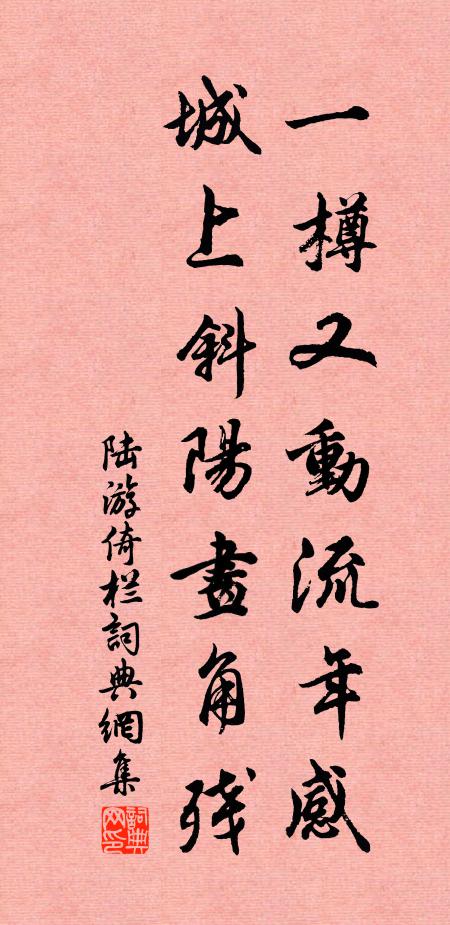 一樽又動流年感
城上斜陽畫角残
陆游倚栏詞典網集
詞典
网印